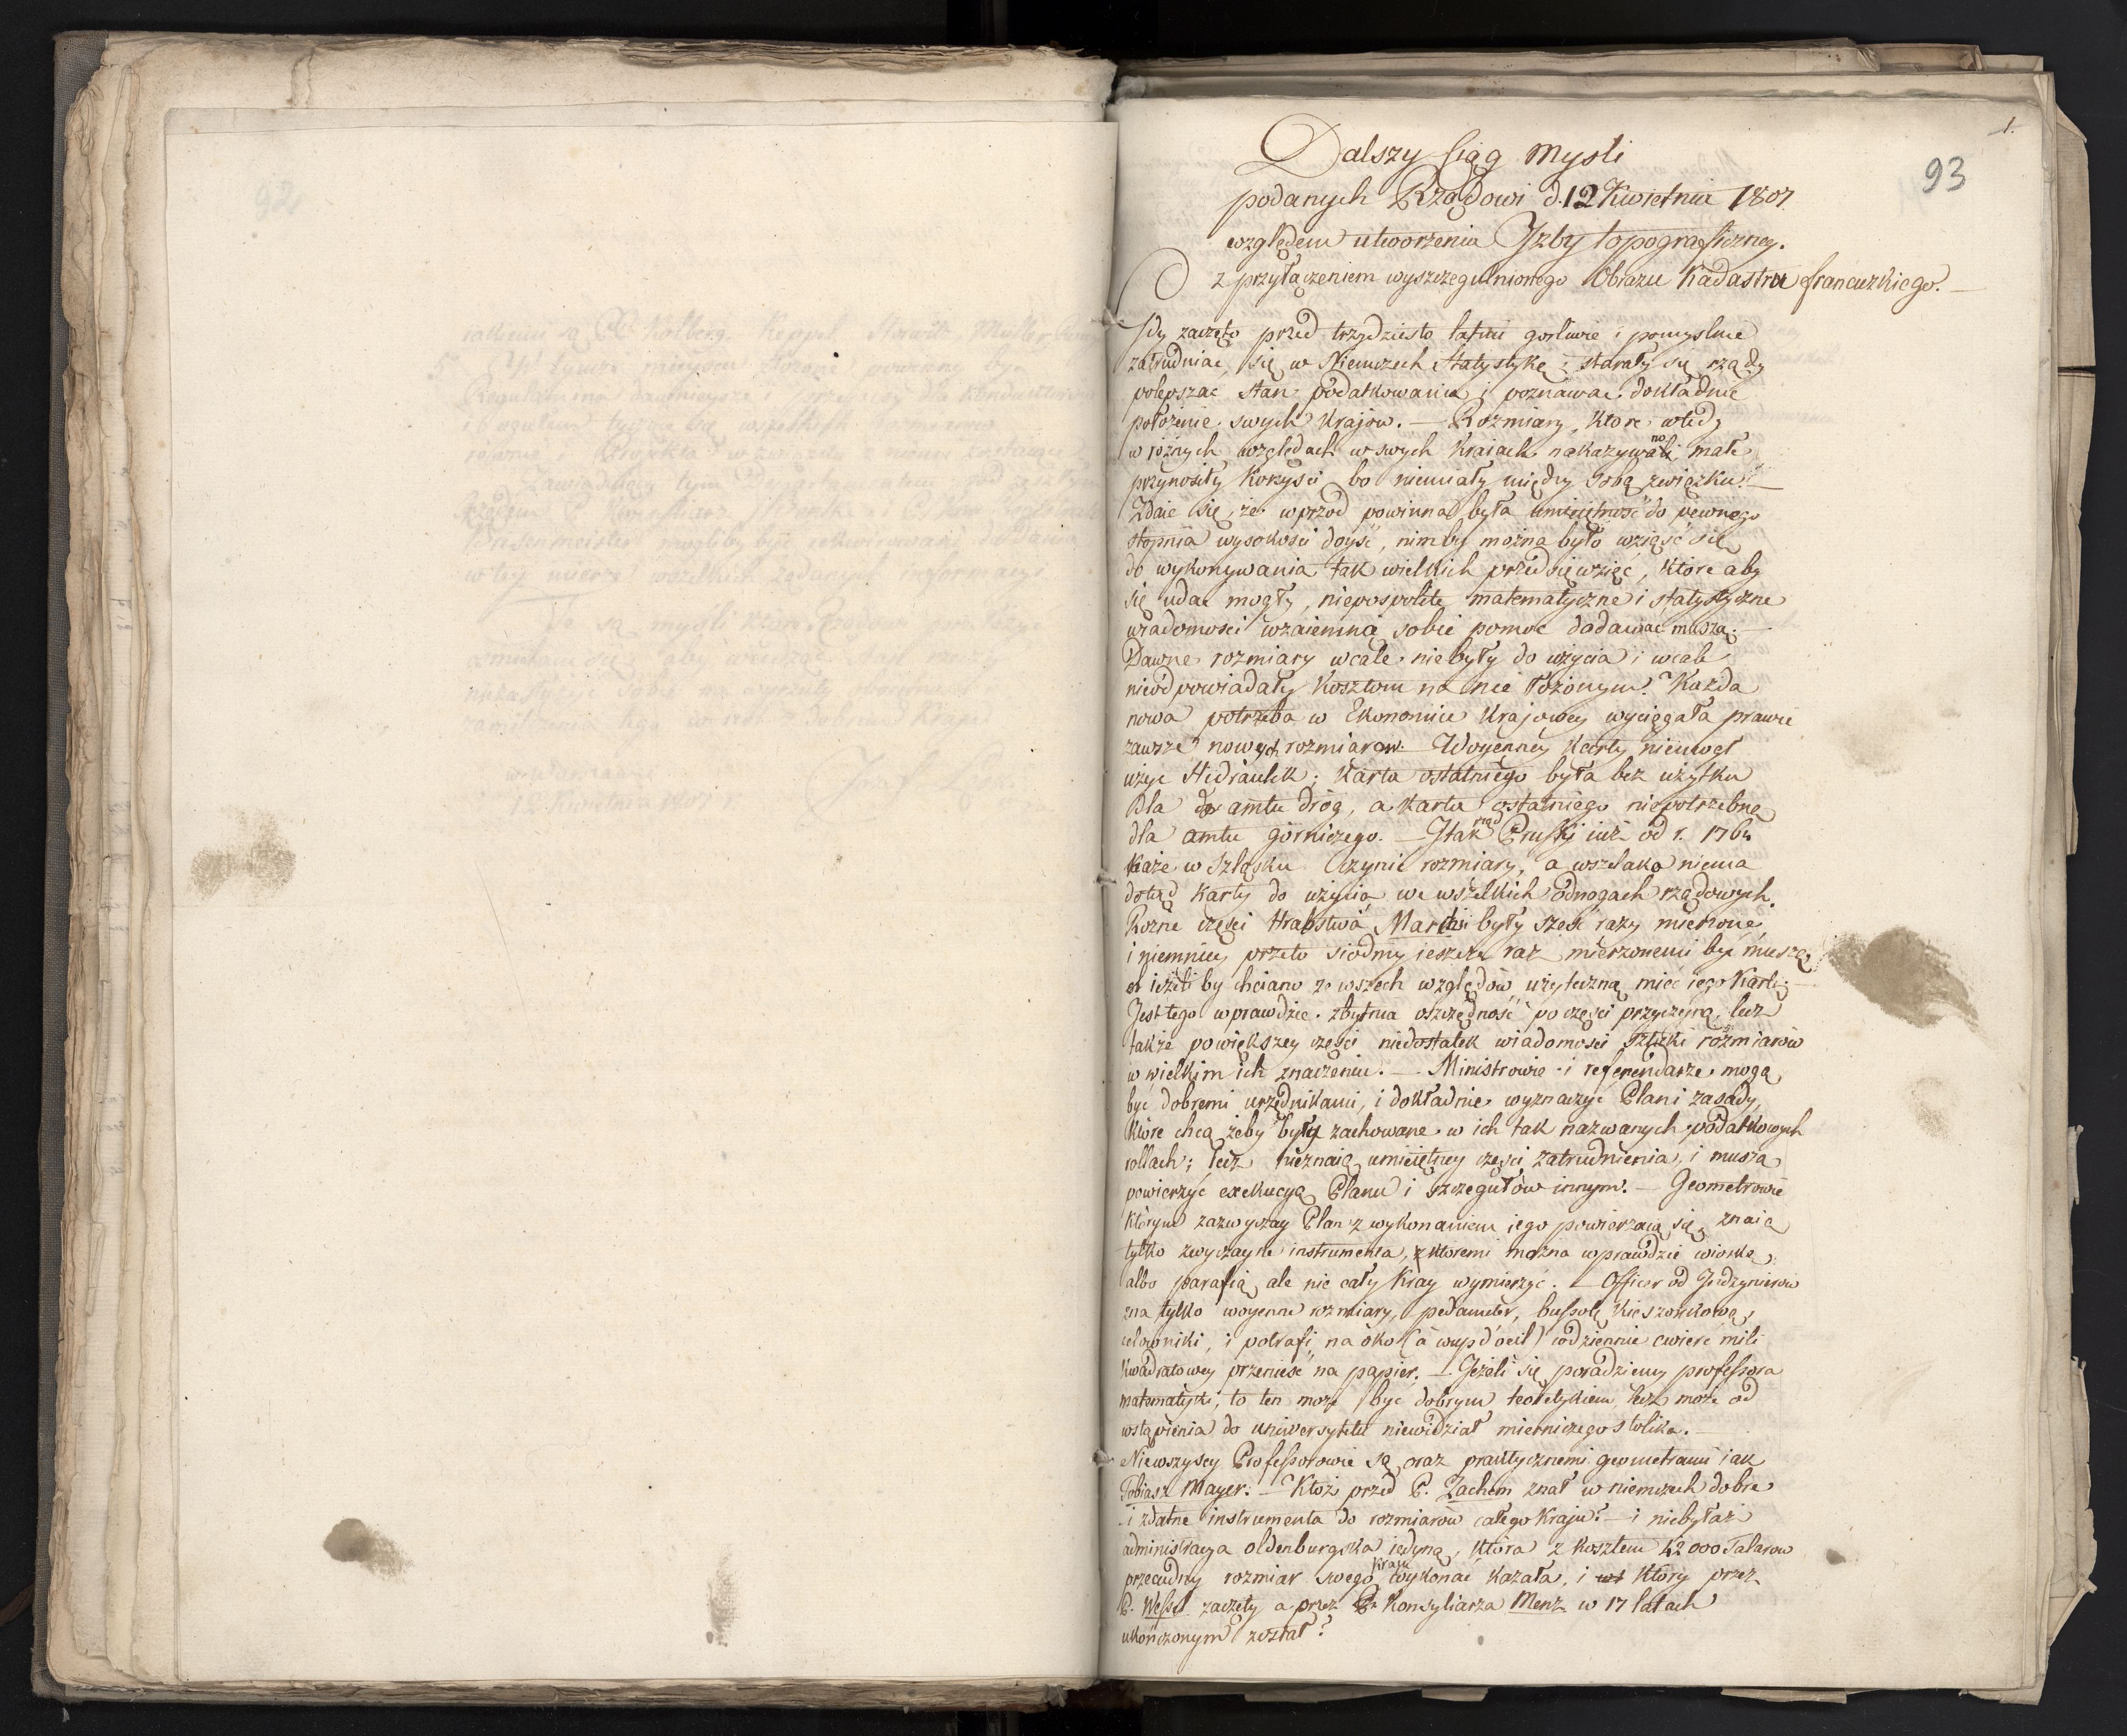 1.
93
Dalszy Ciąg Mysli
podanych Rządowi d. 12 Kwietnia 1807.
względem utworzenia Jzby topograficzney.
z przyłączeniem wyszczegulnionego Obrazu Kadastru francuzkiego. —
Gdy zaczęto przed trzydziesto latmi gorliwie i pomyslnie
zatrudniac się w Niemczech Statystyką; starały się rządy
polepszac stan podatkowania i poznawac dokładnie
położenie swych krajow. — Rozmiary, ktore wtedy
w różnych względach w swych kraiach nakazywano, małe
przynosiły korzysci bo niemiały między sobą związku. —
Zdaie się, że wprzod powinna była umieiętność do pewnego
stopnia wysokości doyść, nimby można było wziąść się
do wykonywania tak wielkich przedsięwzięc, ktore aby
się udac mogły, niepospolite matematyczne i statystyczne
wiadomosci wzaiemną sobie pomoc dodawac muszą. —
Dawne rozmiary wcale nie były do użycia i wcale
nieodpowiadały kosztom na nie łożonym. Każda
nowa potrzeba w Ekonomice krajowey wyciągała prawie
zawsze nowych rozmiarow. Woyenney karty nieumógł
użyc Hidraulik; karta ostatniego była bez użytku
dla amtu dróg, a karta ostatniego niepotrzebną
dla amtu górniczego. — Jtak rząd Pruski już od r. 176
każe w Szląsku czynic rozmiary, a wszelako niema
dotąd karty do użycia we wszelkich odnogach rządowych.
Rozne częsci Hrabstwa Marchii były szesc razy mierzone,
i niemniey przeto siodmy ieszcze raz mierzonemi byc muszą,
ieżeli by chciano ze wszech względów użyteczną miec iego kartę. —
Jest tego wprawdzie zbytnia oszczędność po częsci przyczyną, lecz
także powiększey częsci niedostatek wiadomosci sztuki rozmiarów
w wielkim ich znaczeniu. — Ministrowie i referendarze mogą
byc dobremi urzędnikami, i dokładnie wyznaczyc Plan i zasady,
ktore chcą żeby były zachowane w ich tak nazwanych podatkowych
rollach; lecz nieznaią umieiętney częsci zatrudnienia, i muszą
powierzyć exekucyą Planu i szczegułów innym. — Geometrowie
którym zazwyczay Plan z wykonaniem jego powierzaią się, znaią
tylko zwyczayne instrumenta, z ktoremi można wprawdzie wioskę
albo parafią, ale nie cały kray wymierzyć. — Officer od Jndzynierów
zna tylko woyenne rozmiary, pedameter, bussolę kieszonkową,
celowniki, i potrafi na oko (à coup d'oeil) codziennie cwierc mili
kwadratowey przeniesc na papier. — Jeżeli się poradziemy professora
matematyki, to ten może byc dobrym teoretykiem, lecz może od
wstąpienia do uniwersytetu niewidział mierniczego stolika. —
Niewszyscy Professorowie są oraz praktycznemi geometrami iak
Tobiasz Mayer. — Ktoż przed P. Zachem znał w niemczech dobre
i zdatne instrumenta do rozmiarow całego kraju? — i niebyłaż
administracya oldenburgska iedyną, ktora z kosztem 42000 Talarow
przecudny rozmiar swego kraju wykonać kazała, i który przez
P. Wessel zaczęty a przez P. Konsyliarza Menz w 17 latach
ukończonym został?